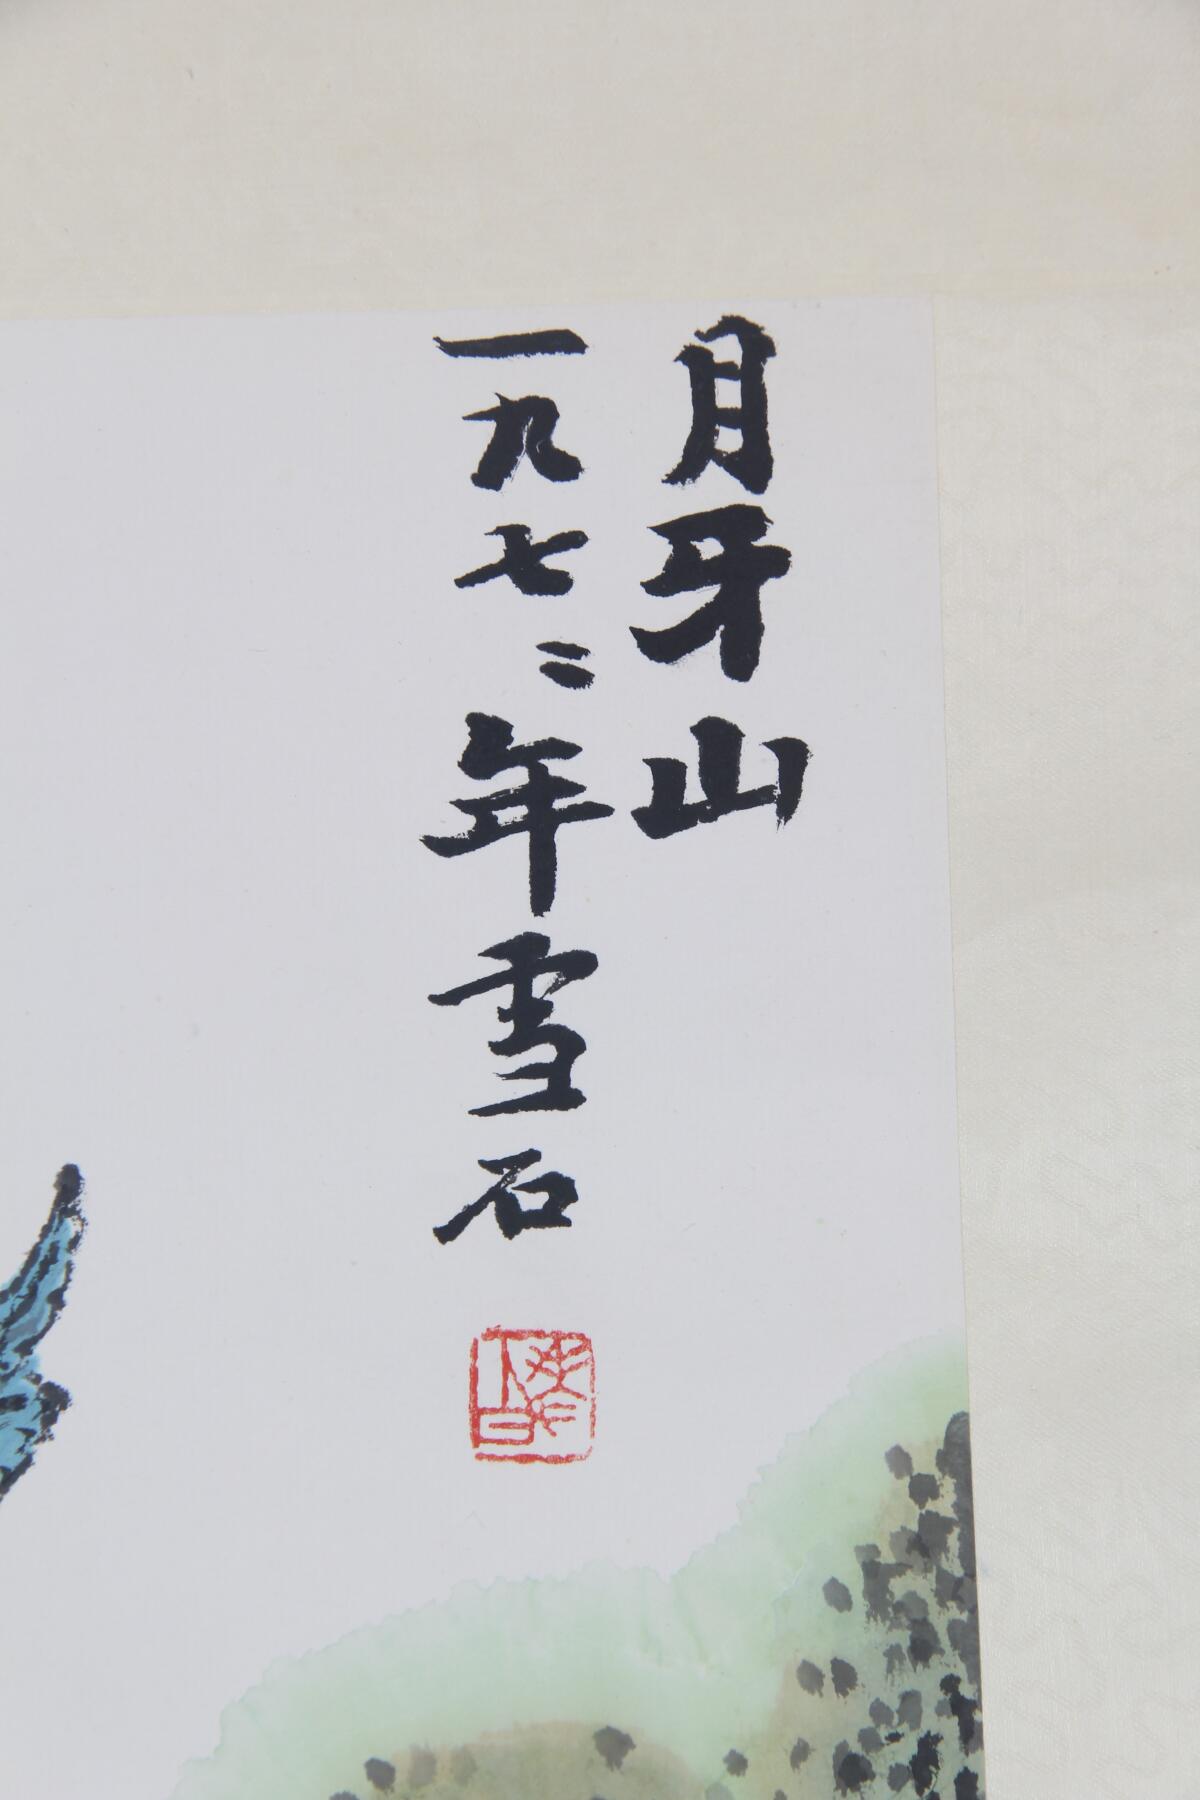 月牙山
一九七二年雪石